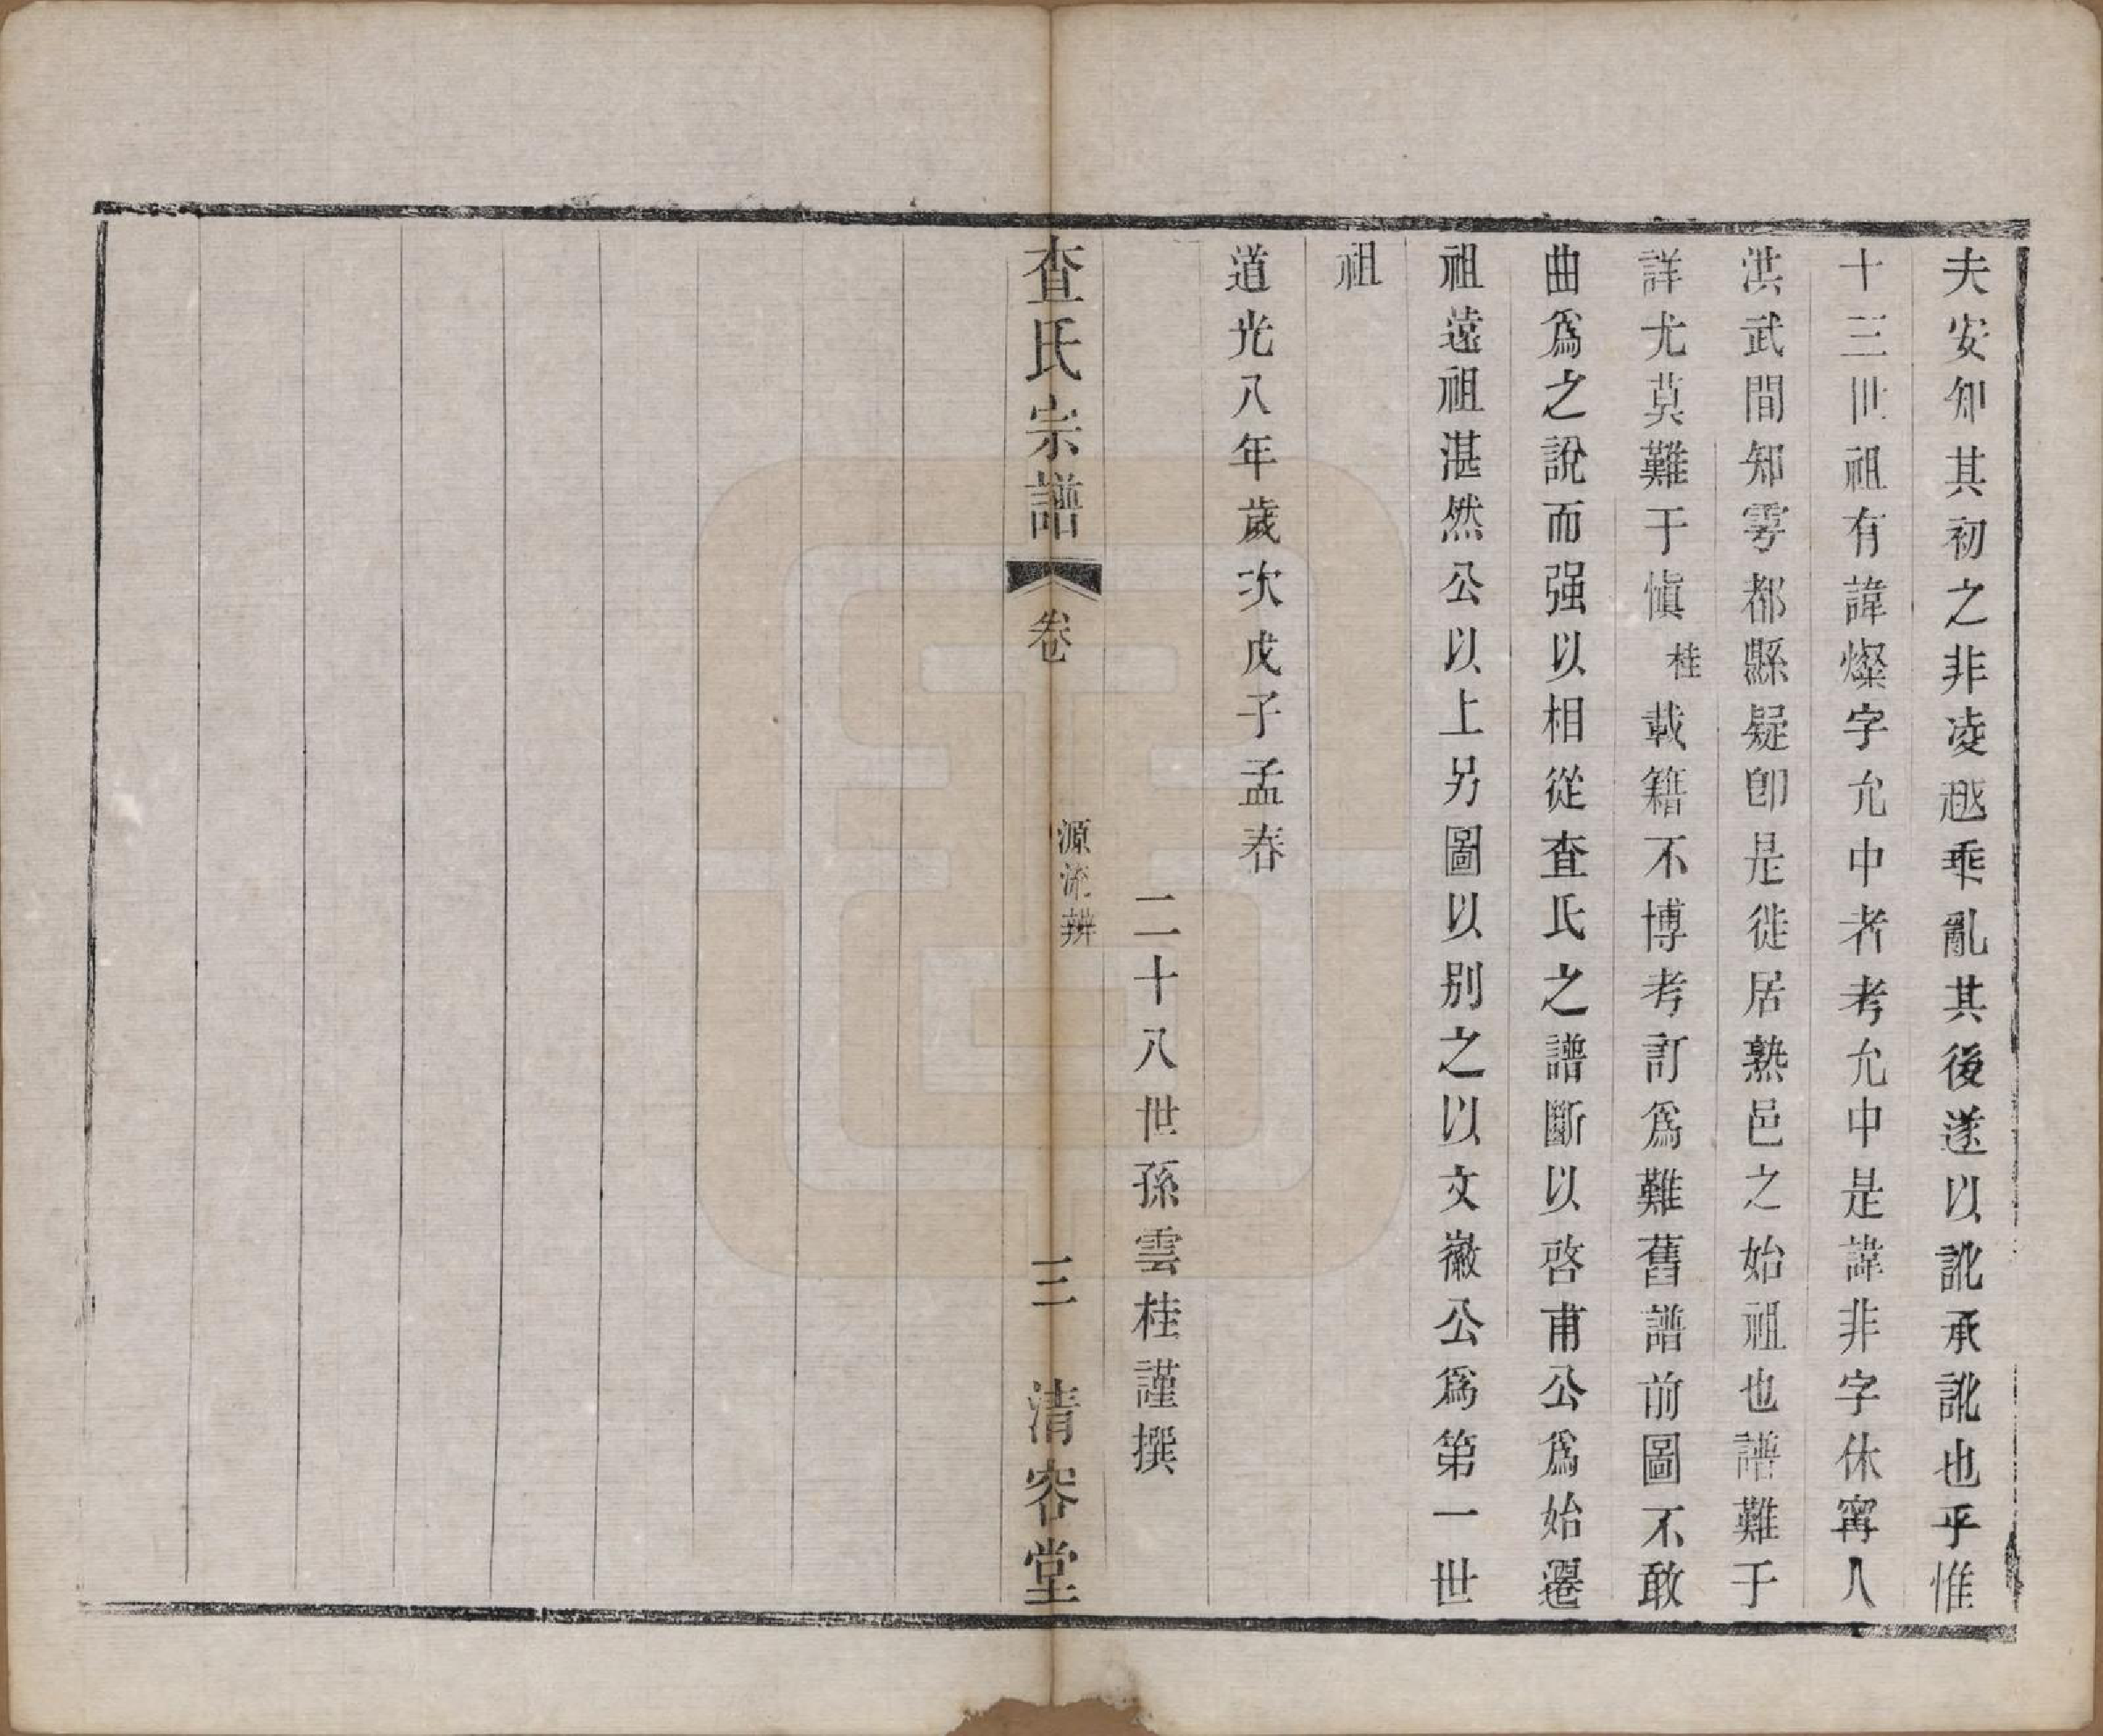 夫安知其初之非凌越乘亂其後遂以訛承訛也乎惟
十三世祖有諱燦字允中者考允中是諱非字休甯人
洪武間知雩都縣疑卽是徙居熟邑之始祖也譜難于
詳尤莫難于愼桂載籍不博考訂爲難舊譜前圖不敢
曲爲之說而强以相從査氏之譜斷以啓甫公爲始遷
祖遠祖湛然公以上另圖以别之以文徽公爲第一世
祖
道光八年歲次戊子孟春
二十八世孫雲桂謹撰
査氏宗譜 卷 源流辨 三 清容堂